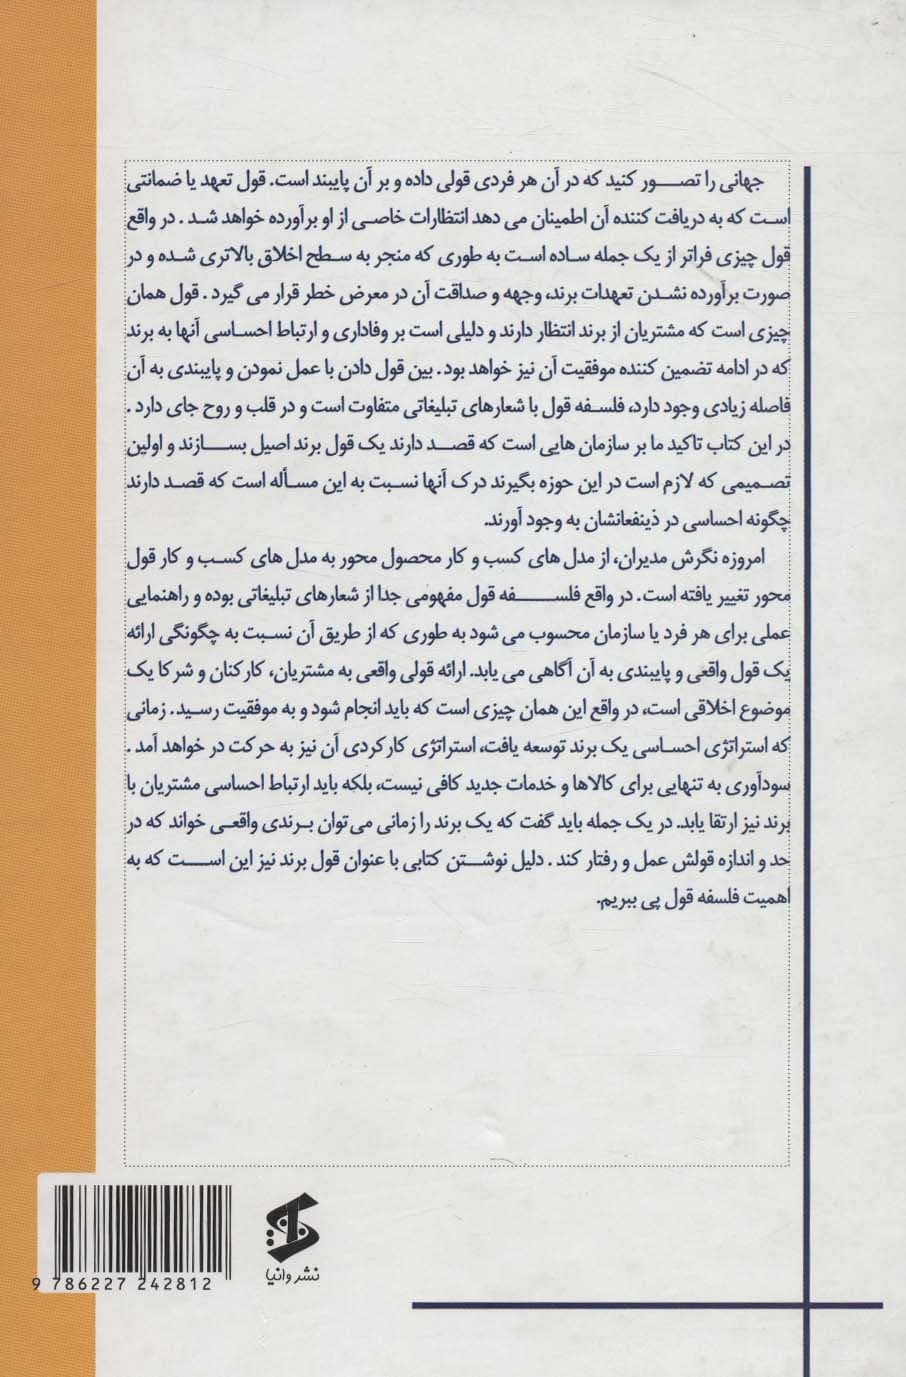 جهانی را تصور کنید که در آن هر فردی قولی داده و بر آن پایبند است. قول تعهد یا ضمانتی
است که به دریافت کننده آن اطمینان می دهد انتظارات خاصی از او برآورده خواهد شد . در واقع
قول چیزی فراتر از یک جمله ساده است به طوری که منجر به سطح اخلاق بالاتری شده و در
صورت برآورده نشدن تعهدات برند، وجهه و صداقت آن در معرض خطر قرار می گیرد . قول همان
چیزی است که مشتریان از برند انتظار دارند و دلیلی است بر وفاداری و ارتباط احساسی آنها به برند
که در ادامه تضمین کننده موفقیت آن نیز خواهد بود . بین قول دادن با عمل نمودن و پایبندی به آن
فاصله زیادی وجود دارد، فلسفه قول با شعارهای تبلیغاتی متفاوت است و در قلب و روح جای دارد .
در این کتاب تاکید ما بر سازمان هایی است که قصد دارند یک قول برند اصیل بسازند و اولین
تصمیمی که لازم است در این حوزه بگیرند درک آنها نسبت به این مسأله است که قصد دارند
چگونه احساسی در ذینفعانشان به وجود آورند.
امروزه نگرش مدیران، از مدل های کسب و کار محصول محور به مدل های کسب و کار قول
محور تغییر یافته است. در واقع فلسفه قول مفهومی جدا از شعارهای تبلیغاتی بوده و راهنمایی
عملی برای هر فرد یا سازمان محسوب می شود به طوری که از طریق آن نسبت به چگونگی ارائه
یک قول واقعی و پایبندی به آن آگاهی می یابد. ارائه قولی واقعی به مشتریان، کارکنان و شرکا یک
موضوع اخلاقی است، در واقع این همان چیزی است که باید انجام شود و به موفقیت رسید. زمانی
که استراتژی احساسی یک برند توسعه یافت، استراتژی کارکردی آن نیز به حرکت در خواهد آمد .
سودآوری به تنهایی برای کالاها و خدمات جدید کافی نیست، بلکه باید ارتباط احساسی مشتریان با
برند نیز ارتقا یابد. در یک جمله باید گفت که یک برند را زمانی می توان برندی واقعی خواند که در
حد و اندازه قولش عمل و رفتار کند . دلیل نوشتن کتابی با عنوان قول برند نیز این است که به
اهمیت فلسفه قول پی ببریم.
نشر وانیا
9 786227 242812